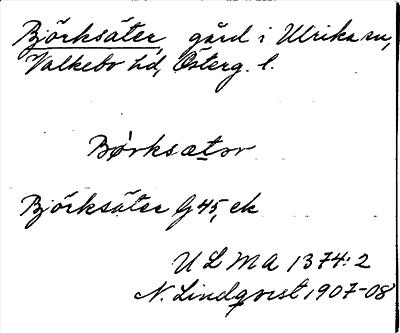 Björksäter, gård i Ulrika sn,
Valkebo hd, Österg. l.
Björksäter G45, ek
ULMA 1374:2
N. Lindqvist 1907-08